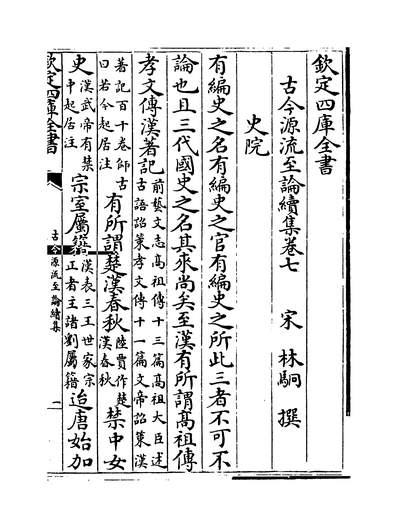 欽定四庫全書
古今源流至論續集卷七　宋　林駉　撰
史院
有編史之名有編史之官有編史之所此三者不可不
論也且三代國史之名其來尚矣至漢有所謂高祖傳
孝文傳漢著記前藝文志高祖傳十三篇高祖大臣述古語詔策孝文傳十一篇文帝詔策漢
著記百十卷師古曰若今起居注有所謂楚漢春秋陸賈作楚漢春秋禁中女
史漢武帝有禁中起居注宗室屬籍漢表三王世家宗正者主諸劉屬籍迨唐始加
欽定四庫全書　古今源流至論續集　一